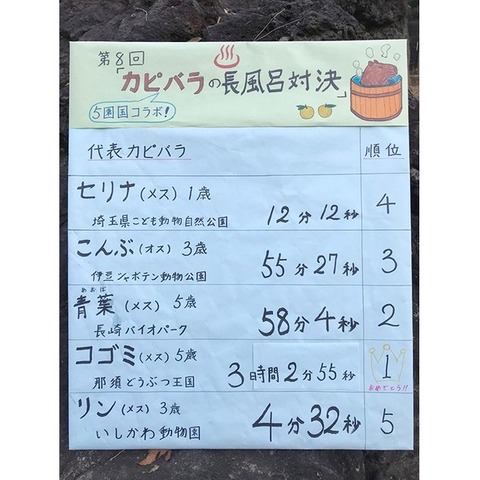 第8回
「カピバラの長風呂対決」
5園国コラボ!
代表カピバラ
順位
セリナ(メス)1歳
埼玉県こども動物自然公園
12分12秒
4
こんぶ(オス)3歳
伊豆シャボテン動物公園
55分27秒
3
あおば
青葉(メス)5歳
長崎バイオパーク
58分4秒
2
コゴミ(メス)5歳
那須どうぶつ王国
3時間2分55秒
1
おめでとう!!
リン(メス)3歳
いしかわ動物園
4分32秒
5